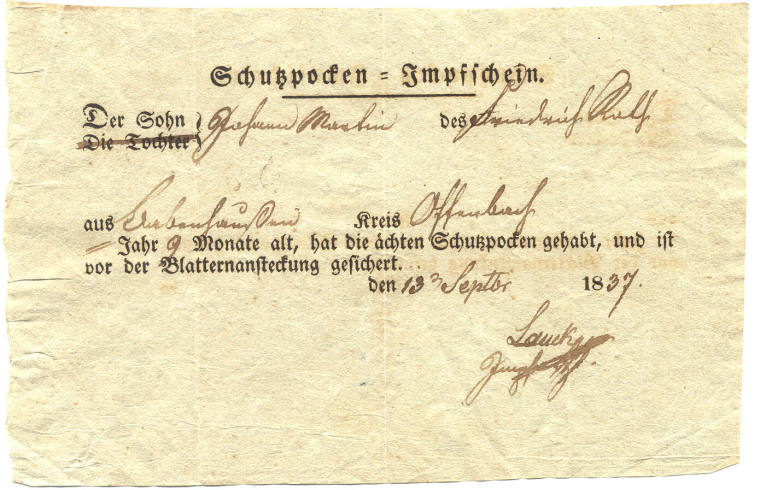 Schutzpocken = Impfschein.
Der Sohn } Johann Martin des Friedrich Roth
Die Tochter }
aus Babenhaußen Kreis Offenbach
– Jahr 9 Monate alt, hat die ächten Schutzpocken gehabt, und ist
vor der Blatternansteckung gesichert.
den 13 Septbr 1837.
Lauck